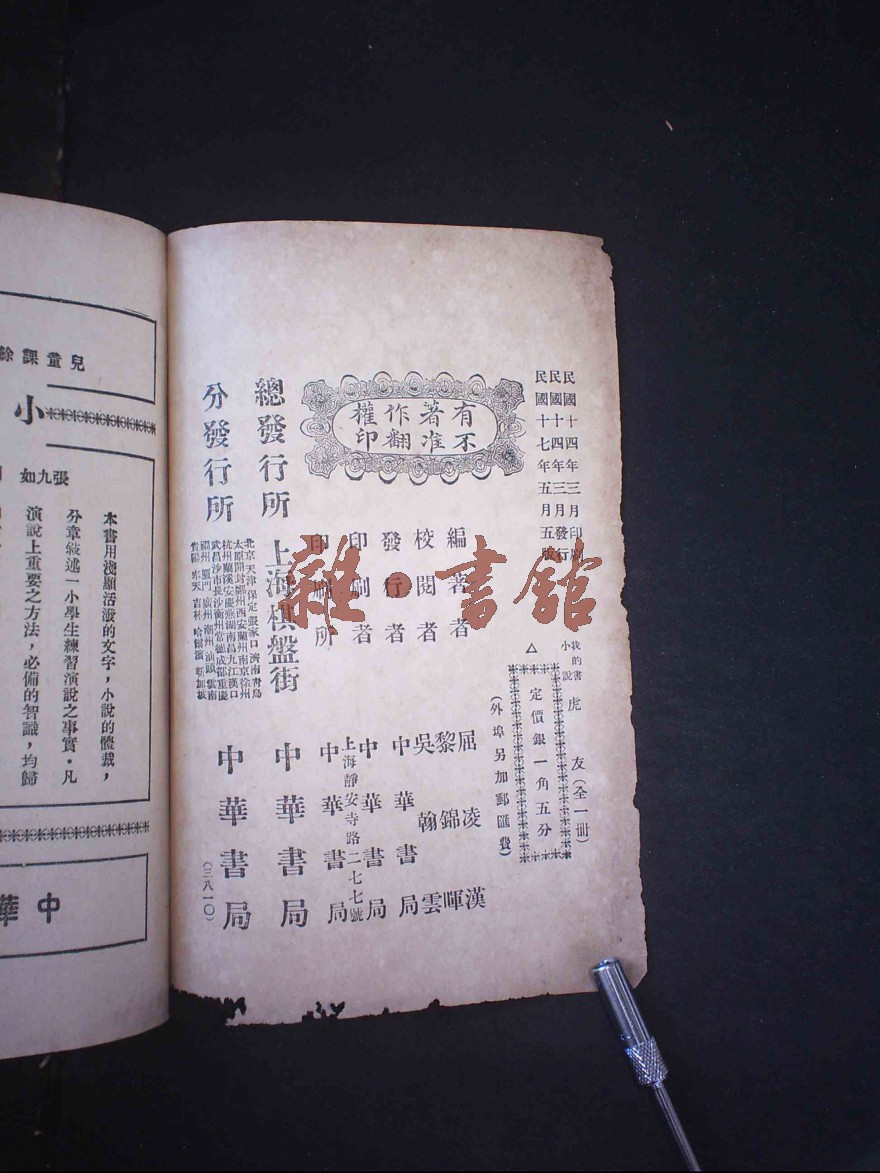 民國十四年三月印刷
民國十四年三月發行
民國十七年五月五版
我的書
小說
虎友(全一冊)
△定價銀一角五分
(外埠另加郵匯費)
有著作權
不准翻印
編著者 屈凌漢
校閱者 黎錦暉
吳翰雲
發行者 中華書局
印刷者 中華書局
上海靜安寺路二七七號
印刷所 中華書局
總發行所 上海棋盤街 中華書局
分發行所
北京 天津 保定 張家口 濟南 青島
太原 開封 鄭州 西安 蘭州 南京 徐州
杭州 蘭溪 安慶 蕪湖 南昌 九江 漢口
武昌 沙市 長沙 衡州 常德 成都 重慶
福州 廈門 廣州 潮州 汕頭 雲南
貴陽 奉天 吉林 哈爾濱 新加坡
中華書局
(三八一〇)
兒童課餘
小
張九如
本書用淺顯活潑的文字,小說的體裁,
分章敍述一小學生練習演說之事實。凡
演說上重要之方法,必備的智識,均歸
中華
雜·書館